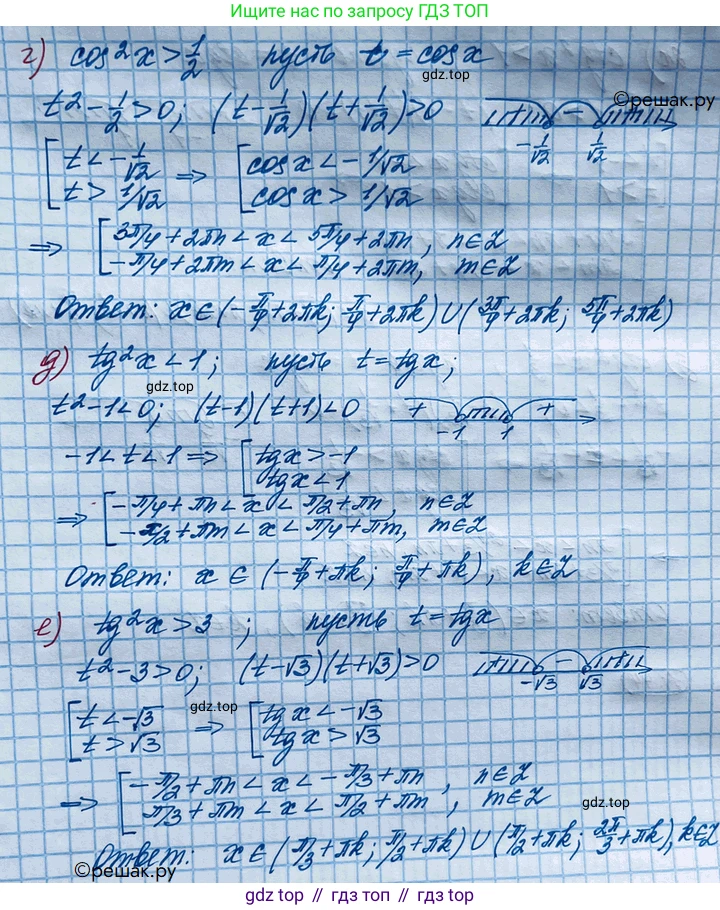 Ищите нас по запросу ГДЗ ТОП
г) cos²x > 1/2 пусть t = cosx
gdz.top
t² - 1/2 > 0; (t - 1/√2)(t + 1/√2) > 0 + - + ©reшак.ру
-1/√2 1/√2
[ t < -1/√2 ⇒ [ cosx < -1/√2
t > 1/√2 cosx > 1/√2
⇒ [ 3π/4 + 2πn < x < 5π/4 + 2πn, n∈Z
-π/4 + 2πm < x < π/4 + 2πm, m∈Z
Ответ: x∈(-π/4 + 2πk; π/4 + 2πk)∪(3π/4 + 2πk; 5π/4 + 2πk)
д) tg²x < 1; пусть t = tgx;
gdz.top
t² - 1 < 0; (t-1)(t+1) < 0 + - +
-1 1
-1 < t < 1 ⇒ [ tgx > -1
tgx < 1
⇒ [ -π/4 + πn < x < π/2 + πn, n∈Z
-π/2 + πm < x < π/4 + πm, m∈Z
Ответ: x∈(-π/4 + πk; π/4 + πk), k∈Z
е) tg²x > 3; пусть t = tgx
t² - 3 > 0; (t-√3)(t+√3) > 0 + - +
-√3 √3
gdz.top
[ t < -√3 ⇒ [ tgx < -√3
t > √3 tgx > √3
⇒ [ -π/2 + πn < x < -π/3 + πn, n∈Z
π/3 + πm < x < π/2 + πm, m∈Z
gdz.top
Ответ: x∈(π/3 + πk; π/2 + πk)∪(π/2 + πk; 2π/3 + πk), k∈Z
©решак.ру
gdz top // гдз топ // gdz.top